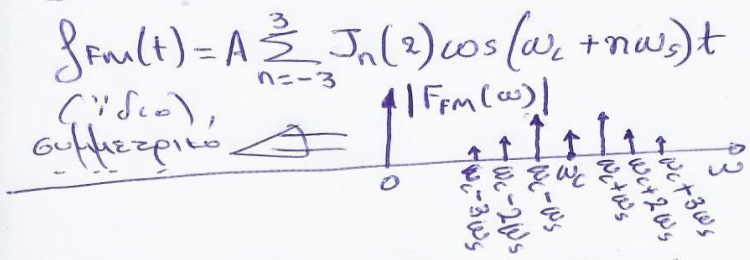 f_FM(t) = A Σ_{n=-3}^{3} J_n(2) cos(ω_c + nω_s)t
(ίδιο),
συμμετρικό
|F_FM(ω)|
0 ω_c-3ω_s ω_c-2ω_s ω_c-ω_s ω_c ω_c+ω_s ω_c+2ω_s ω_c+3ω_s ω